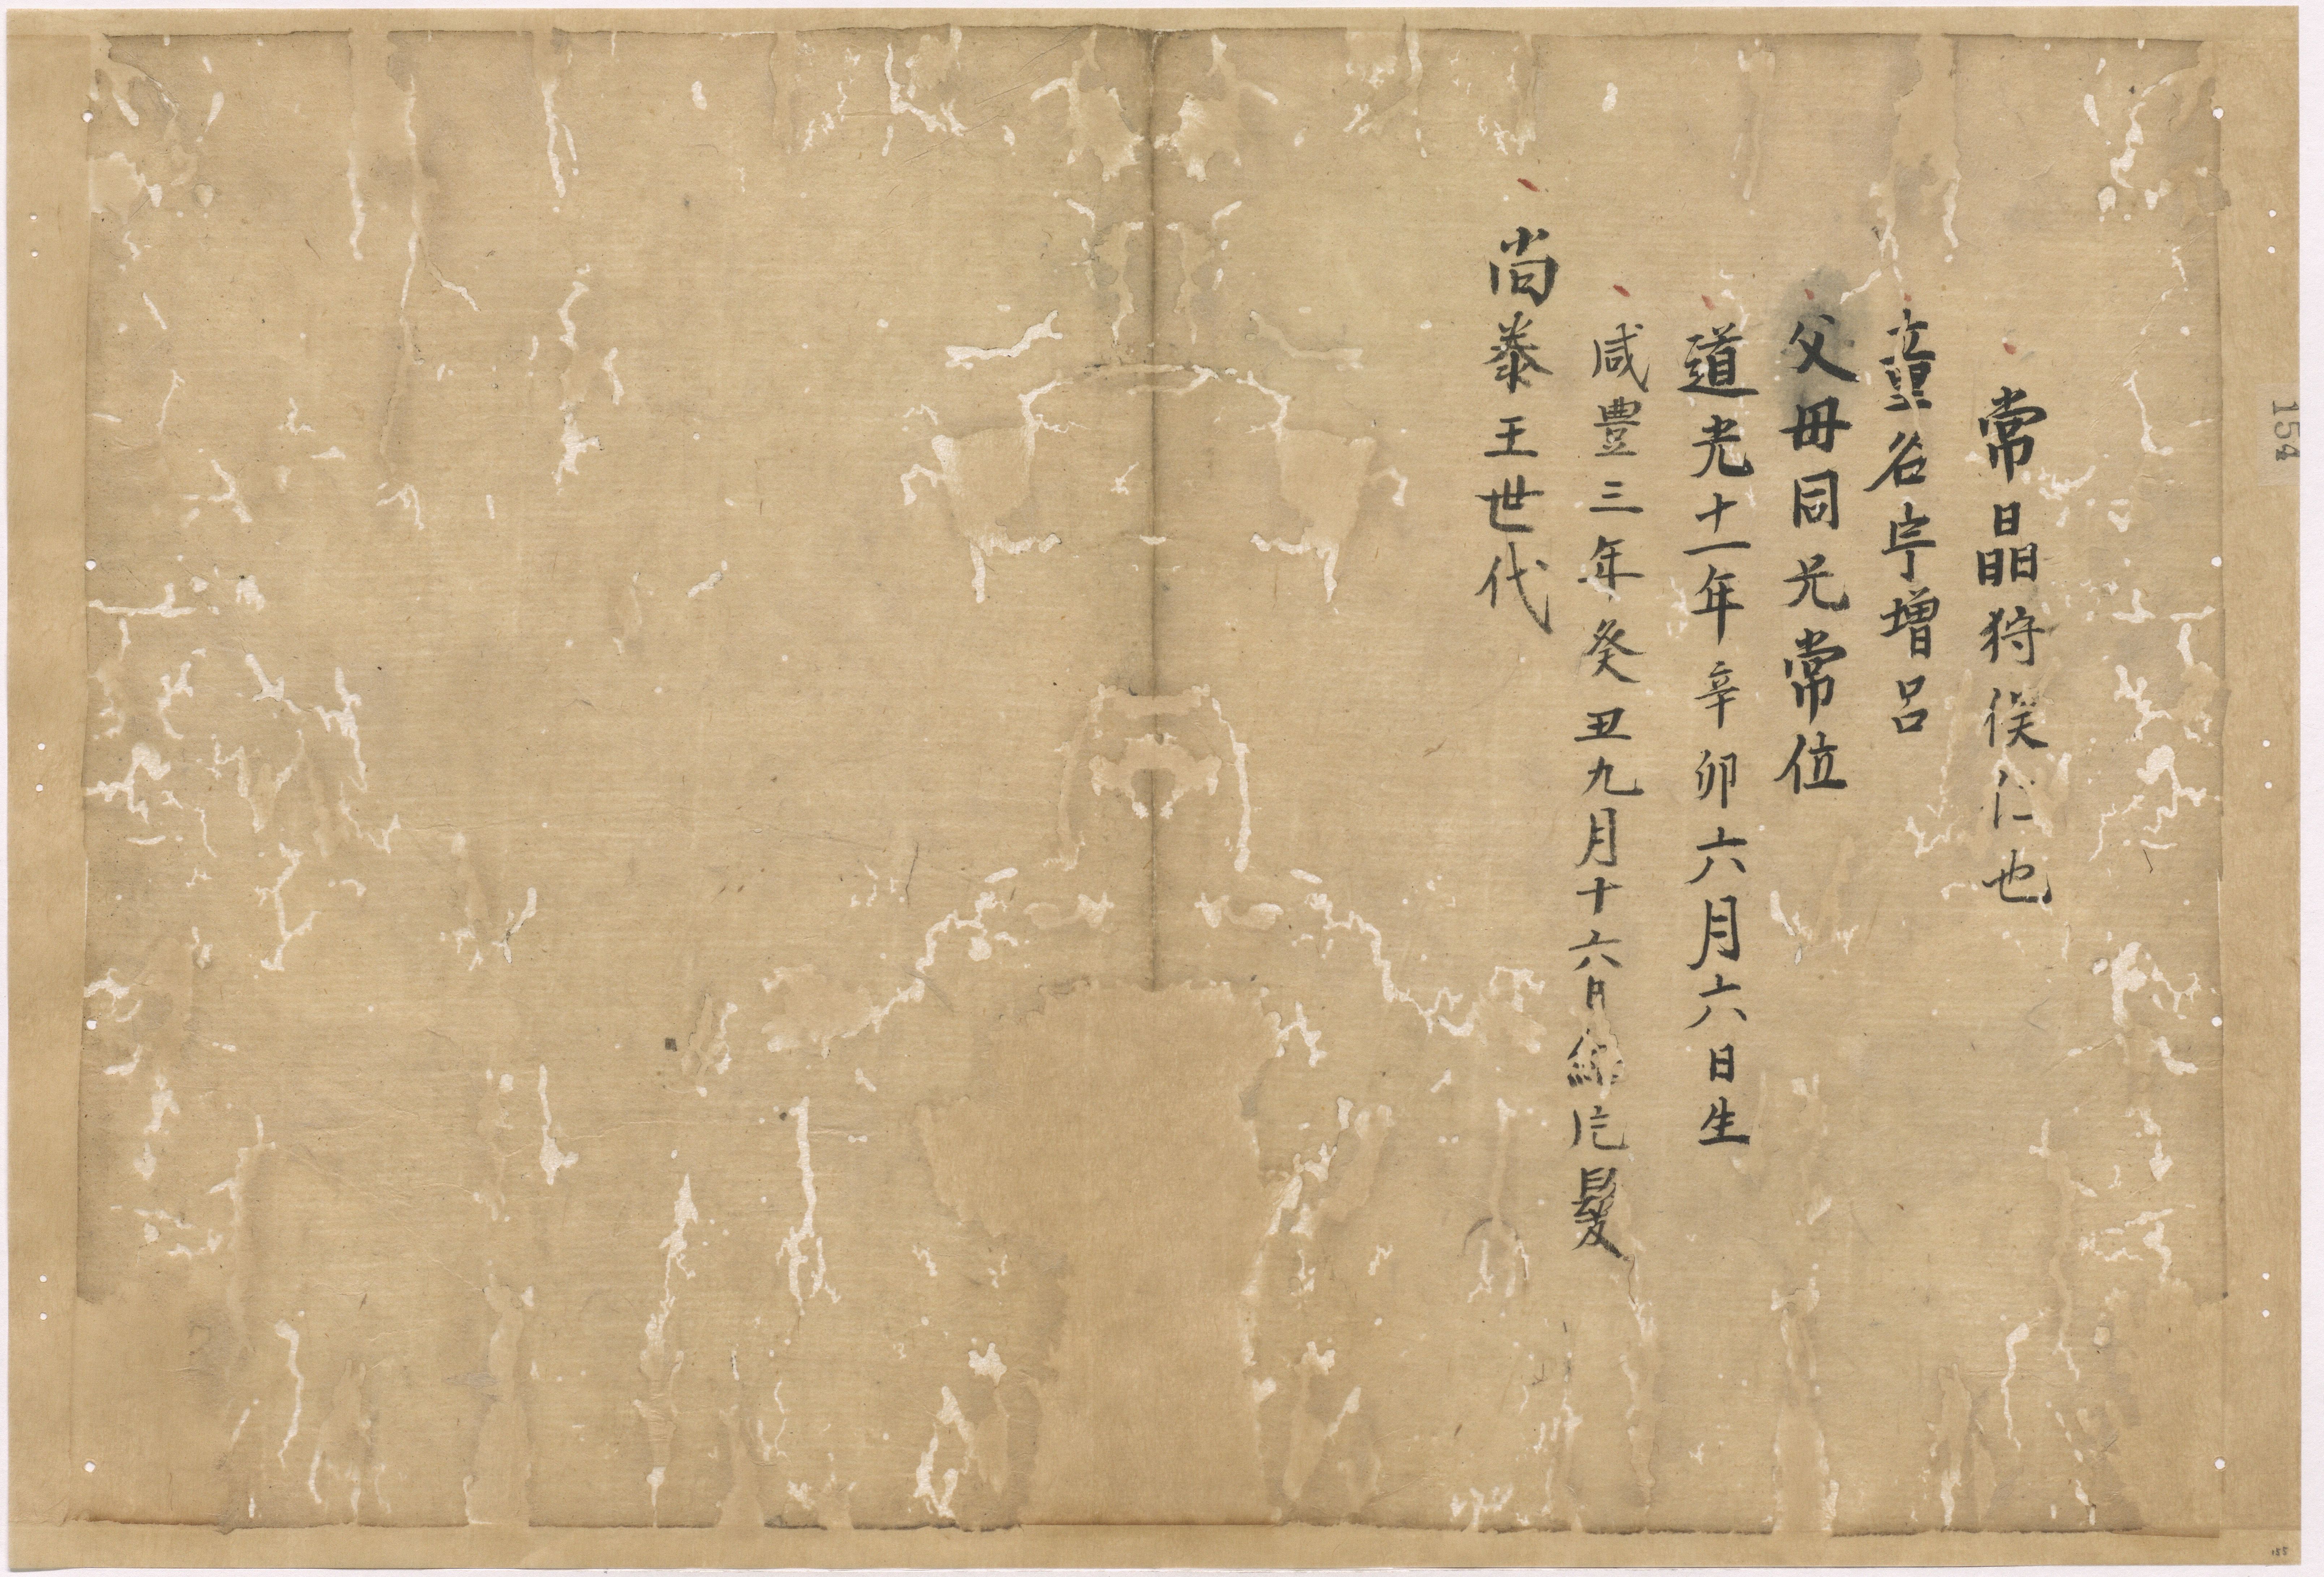 常晶狩俣仁也
童名字增呂
父母同兄常位
道光十一年辛卯六月六日生
咸豊三年癸丑九月十六日結片髮
尚泰王世代
154